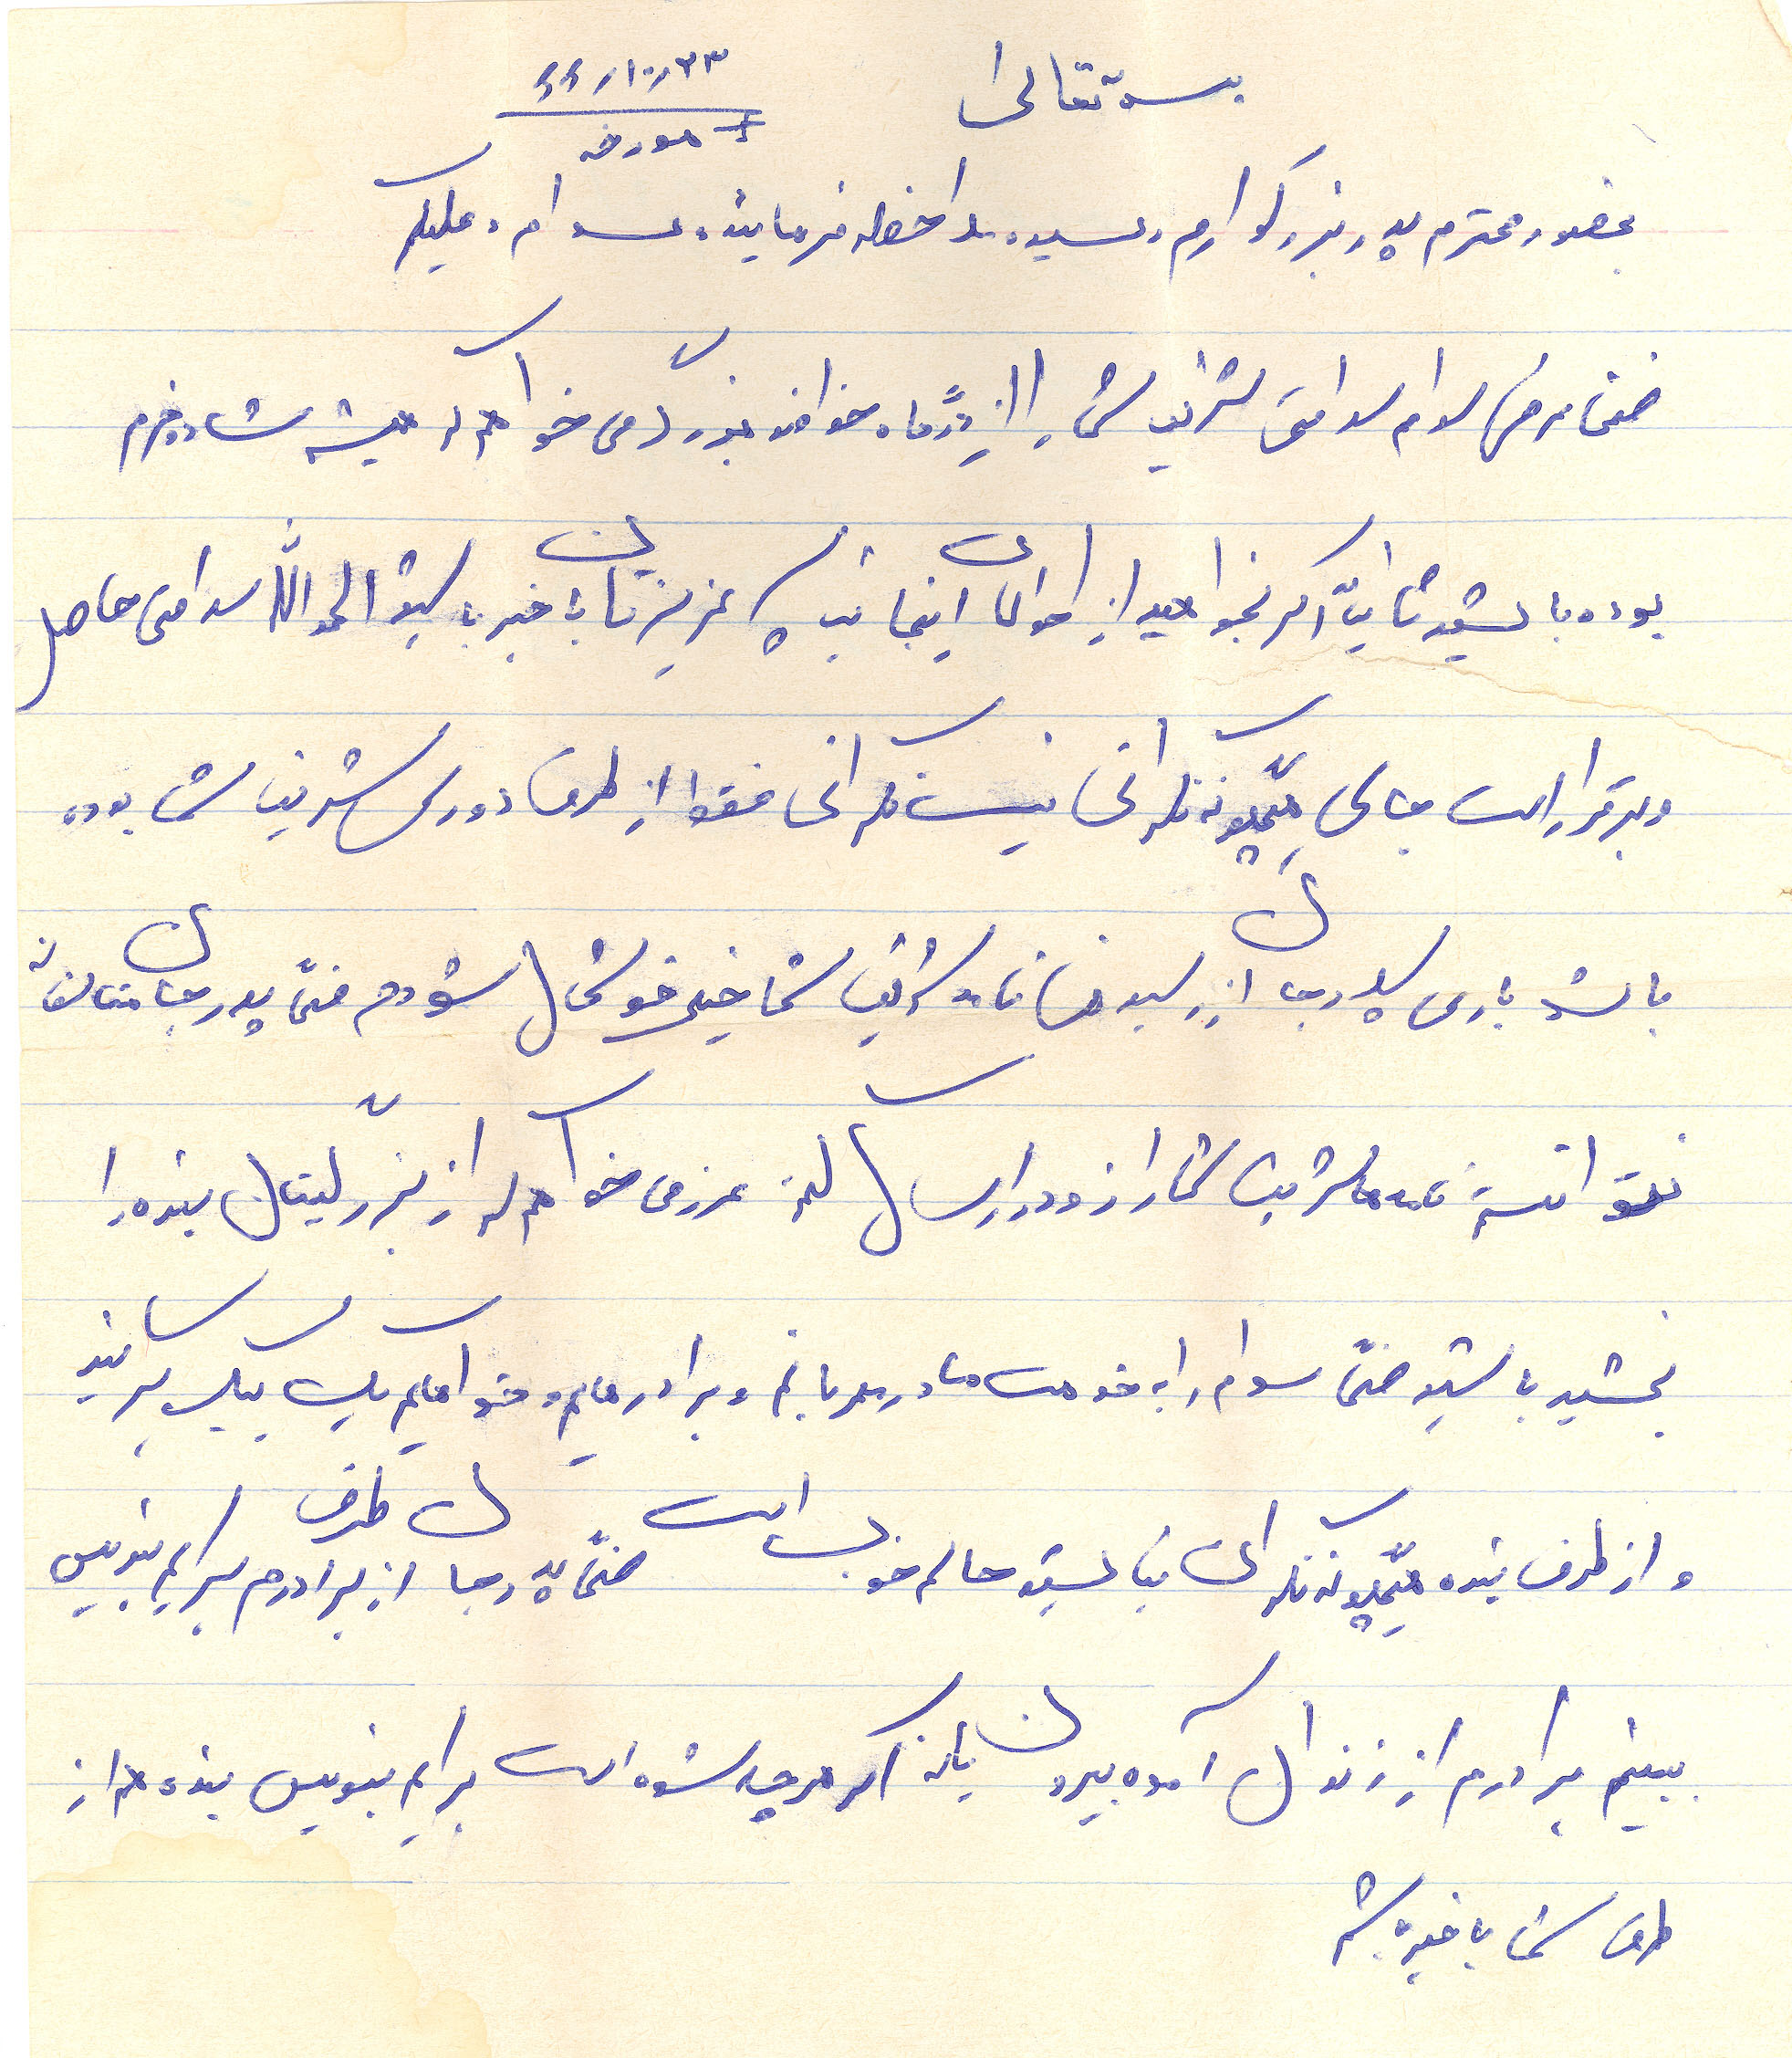 بسمه تعالی
۲۳ /۱۰/ ۶۶
مورخه
بحضور محترم پدر بزرگوارم رسیده ملاحضه فرمایند سلام و علیکم
ضمن عرض سلام سلامتی شریف شما را از درگاه خداوند بزرگ می خواهم که همیشه شاد و خرم
بوده باشید ثانیاً اگر بخواهید از احوالی اینجانب پسر عزیزتان با خبر باشید الحمد الله سلامتی حاصل
و برقرار است جای هیچگونه نگرانی نیست نگرانی فقط از طرف دوری شریف شما بوده
باشد باری پدر جان از رسیدن نامه شریف شما خیلی خوشحال شودم ضمناً پدر جان متاسفانه
نتوانستم نامه شریف شما را زودرارسال کنم عرز می خواهم که از بزرگیتان بنده را
بخشید باشید ضمناً سلام را به خدمت مادر مهربانم و برادرهایم و خواهایم یک یک برسانید
و از طرف بنده هیچگونه نگرانی نباشید حالم خوب است ضمناً پدر جان از طرف برادرم برایم بنویس
ببینم برادرم از زندان آمده بیرون یا نه اگر هرچه شده است برایم بنویس بنده هم از
طرف شما با خبر باشم